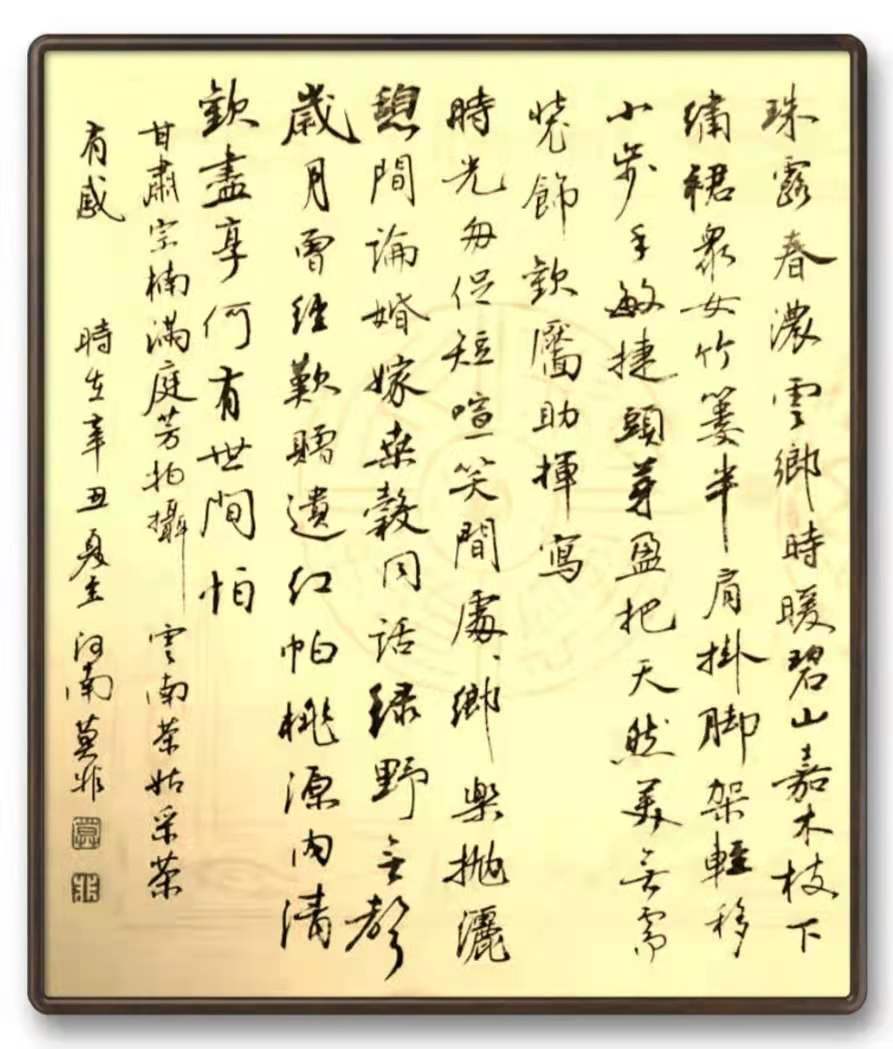 珠露春濃雲鄉時暖碧山嘉木枝下
繡裙衆女竹簍半肩掛脚架輕移
小步手敏捷頭芽盈把天然美無需
飾歡靨助揮寫
時光匆促短喧笑間處、鄉樂拋灑
憩間論婚嫁桑穀同話綠野無聲
歲月曾經歎贈遺紅帕桃源内清
歡盡享何有世間怕
甘肅宗楠滿庭芳拍攝 雲南茶姑采茶
有感 時在辛丑夏至 河南莫非
莫
非